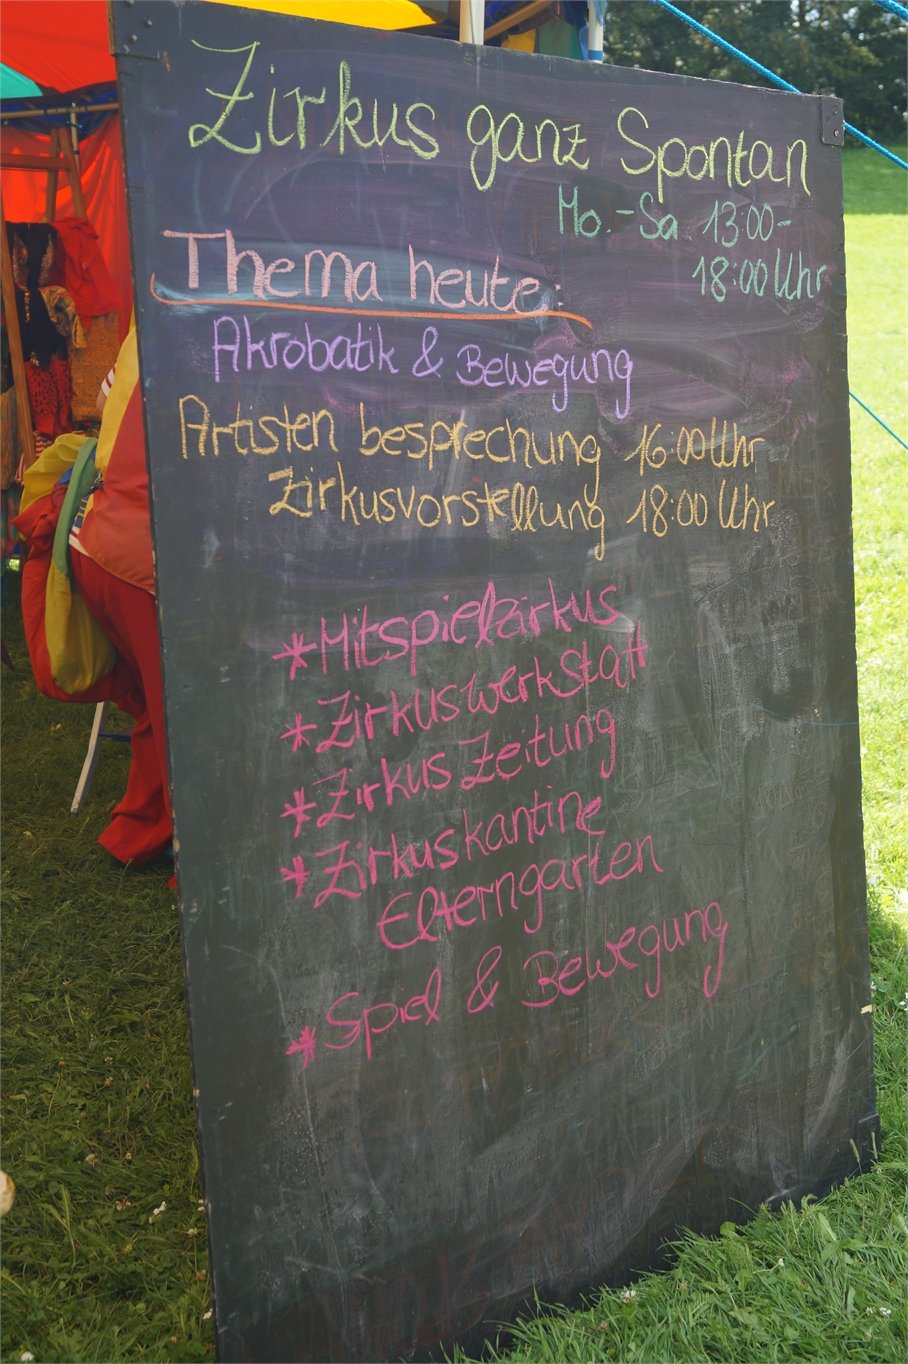 Zirkus ganz Spontan
Mo.-Sa. 13:00-
18:00 Uhr
Thema heute:
Akrobatik & Bewegung
Artisten besprechung 16:00 Uhr
Zirkusvorstellung 18:00 Uhr
*Mitspielzirkus
*Zirkuswerkstatt
*Zirkus Zeitung
*Zirkuskantine
Elterngarten
*Spiel & Bewegung